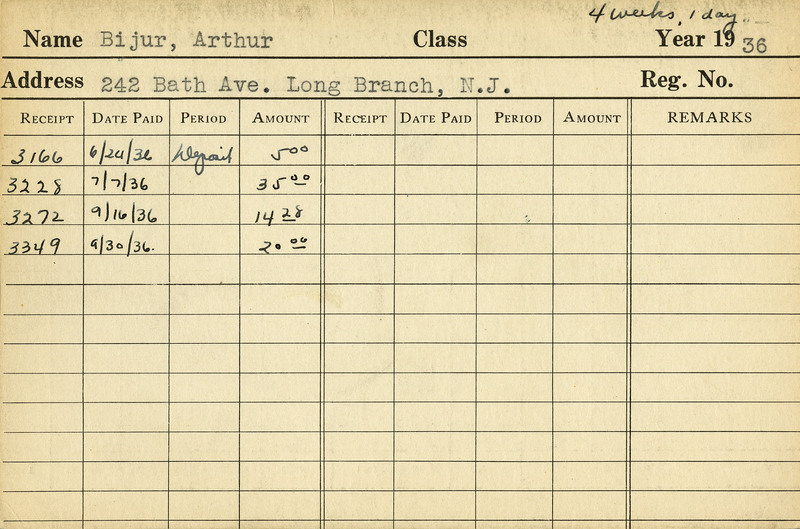 4 weeks, 1 day
Name Bijur, Arthur Class Year 1936
Address 242 Bath Ave. Long Branch, N.J. Reg. No.
RECEIPT DATE PAID PERIOD AMOUNT RECEIPT DATE PAID PERIOD AMOUNT REMARKS
3166 6/24/36 Deposit 5 00
3228 7/7/36 35 00
3272 9/16/36 14 28
3349 9/30/36. 20 00